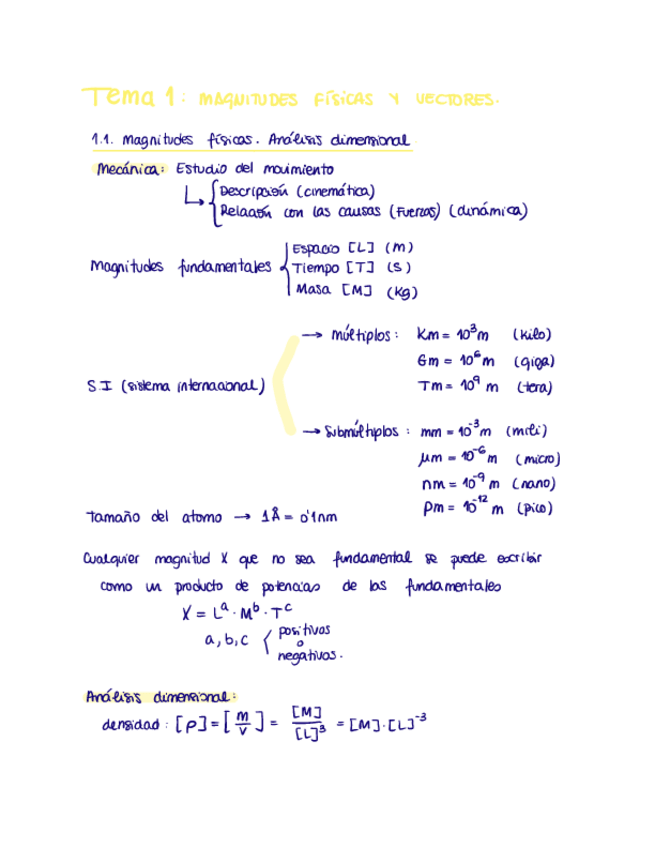 Tema 1: MAGNITUDES FÍSICAS Y VECTORES.
1.1. Magnitudes físicas. Análisis dimensional
Mecánica: Estudio del movimiento
Descripción (cinemática)
Relación con las causas (Fuerzas) (dinámica)
Magnitudes fundamentales
Espacio [L] (m)
Tiempo [T] (s)
Masa [M] (kg)
SI (sistema internacional)
→ múltiplos: Km = 10³m (kilo)
Gm = 10⁶m (giga)
Tm = 10⁹ m (tera)
→ Submúltiplos: mm = 10⁻³m (mili)
μm = 10⁻⁶m (micro)
nm = 10⁻⁹ m (nano)
pm = 10⁻¹² m (pico)
Tamaño del atomo → 1Å = 0'1nm
Cualquier magnitud X que no sea fundamental se puede escribir
como un producto de potencias de las fundamentales
X = Lᵃ · Mᵇ · Tᶜ
a, b, c
positivos
o
negativos.
Análisis dimensional:
densidad: [ρ] = [m/v] = [M]/[L]³ = [M]·[L]⁻³